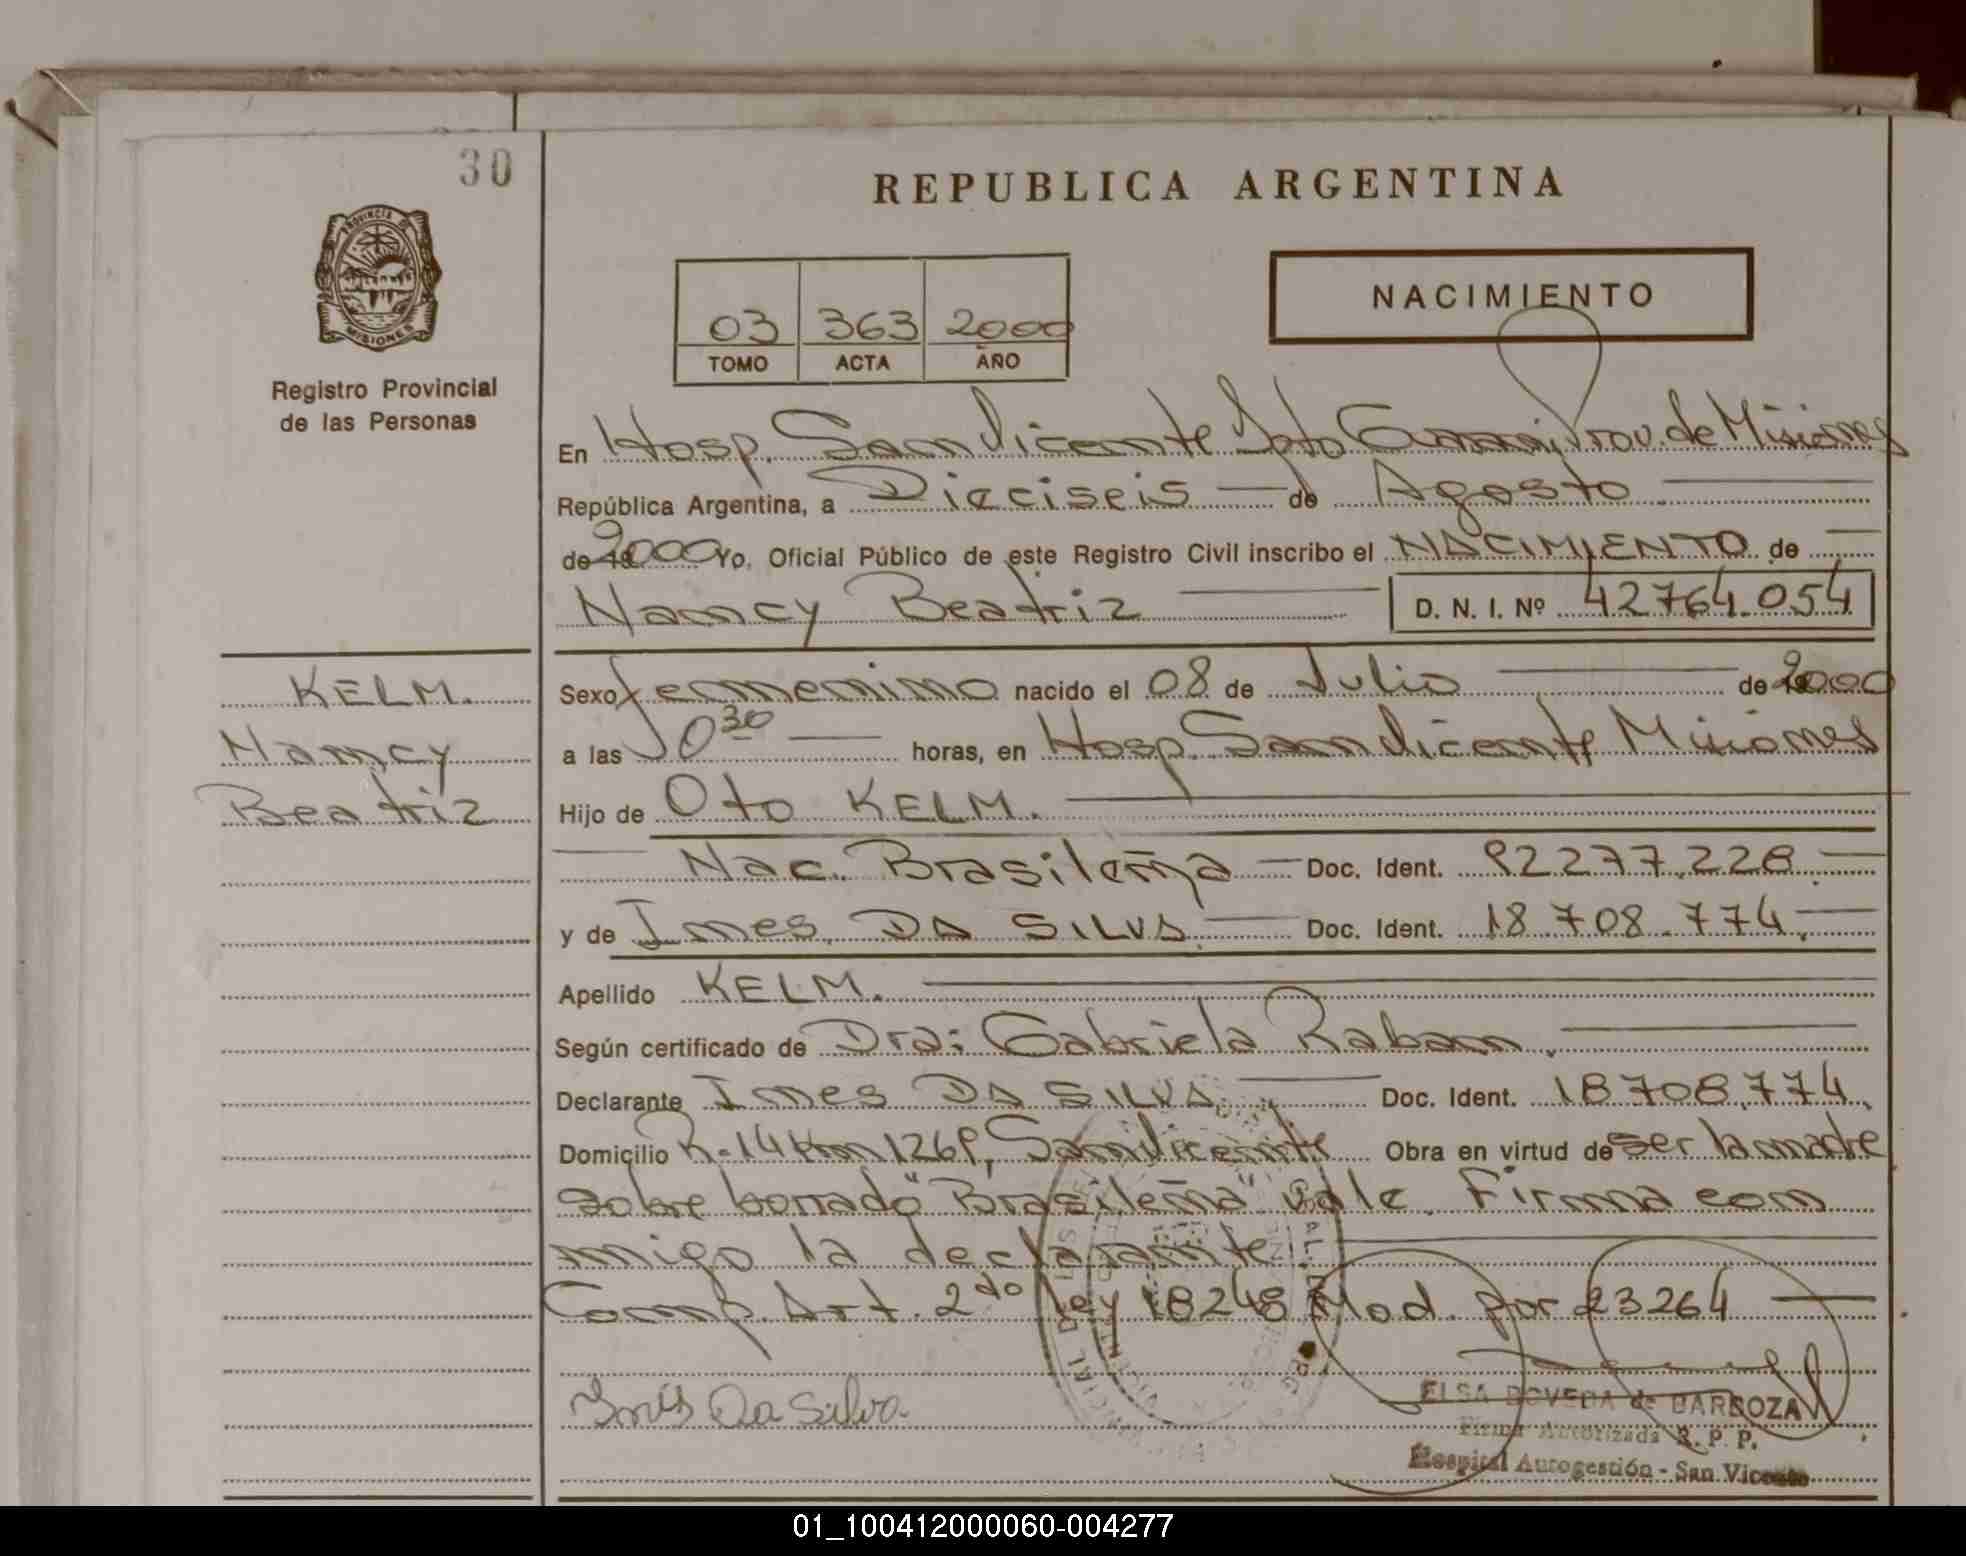 30
REPUBLICA ARGENTINA
PROVINCIA DE
MISIONES
Registro Provincial
de las Personas
03 363 2000
TOMO ACTA AÑO
NACIMIENTO
En Hosp. San Vicente Dpto Guaraní Prov. de Misiones
República Argentina, a Dieciseis de Agosto
de 19 2000 Yo, Oficial Público de este Registro Civil inscribo el NACIMIENTO de
Nancy Beatriz D. N. I. Nº 42764.054
KELM.
Nancy
Beatriz
Sexo femenino nacido el 08 de Julio de 2000
a las 10 30 horas, en Hosp. San Vicente Misiones
Hijo de Oto KELM.
Nac. Brasileña Doc. Ident. 92277.228
y de Ines DA SILVA Doc. Ident. 18.708.774
Apellido KELM.
Según certificado de Dra: Gabriela Raban
Declarante Ines DA SILVA Doc. Ident. 18708.774
Domicilio R. 14 Km 1269, San Vicente Obra en virtud de ser la madre
sobre borrado "Brasileña" vale. Firma con
migo la declarante
Comp. Art. 2do ley 18248 Mod. por 23264
Inés Da Silva
ELSA DOVEDA de BARBOZA
Firma Autorizada R. P. P.
Hospital Autogestión - San Vicente
01_100412000060-004277